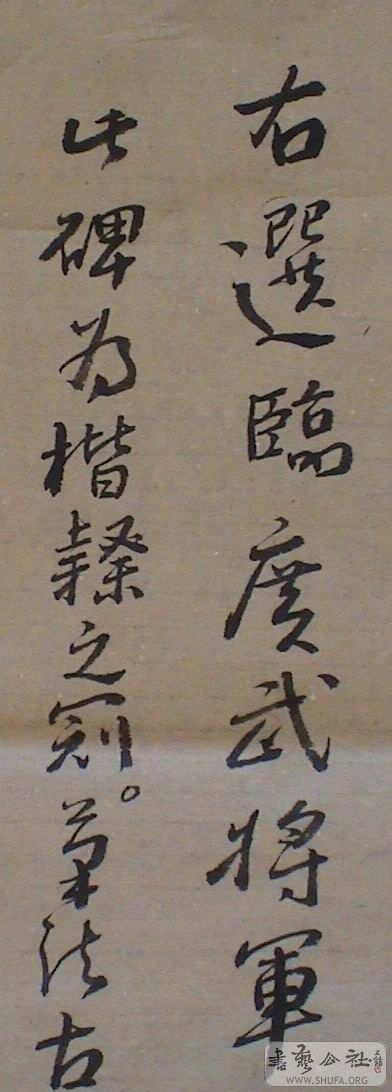 右選臨廣武將軍
此碑為楷隸之冠。筆法古
書藝公社
WWW.SHUFA.ORG